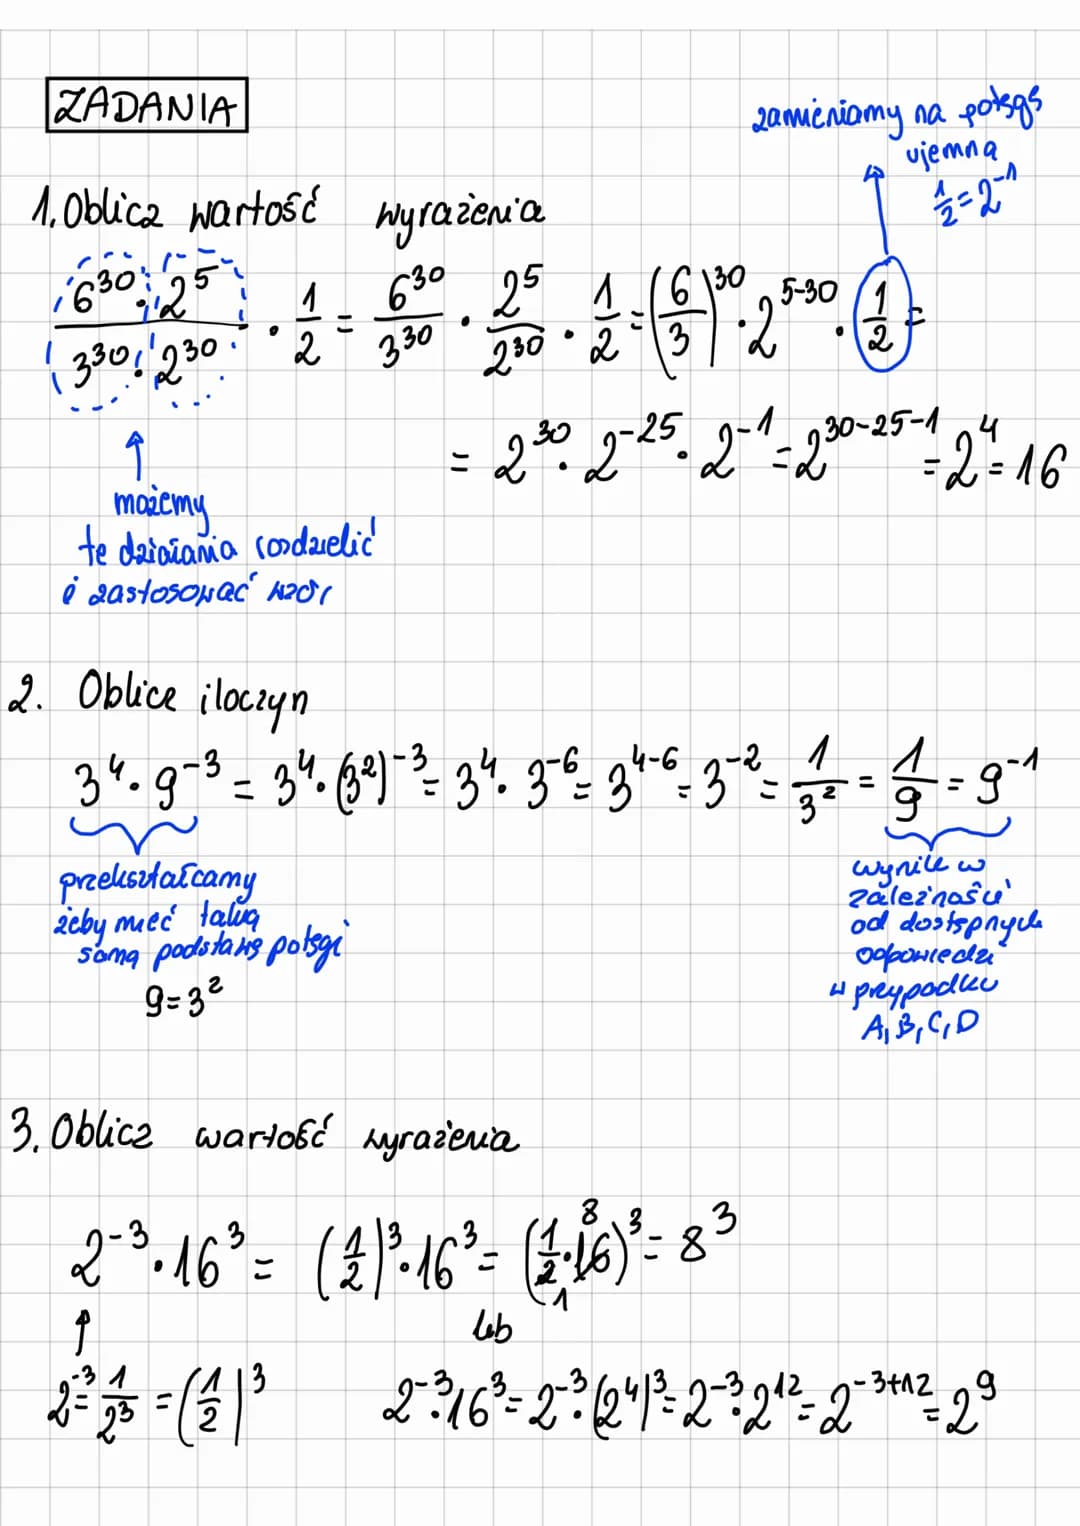 ZADANIA
zamieniamy na potęgę
ujemną
1/2 = 2^-1
1. Oblicz wartość wyrażenia
(6^30 · 2^5)/(3^30 · 2^30) · 1/2 = 6^30/3^30 · 2^5/2^30 · 1/2 = (6/3)^30 · 2^5-30 · 1/2 =
= 2^30 · 2^-25 · 2^-1 = 2^30-25-1 = 2^4 = 16
możemy
te działania rozdzielić
i zastosować wzór
2. Oblice iloczyn
3^4 · 9^-3 = 3^4 · (3^2)^-3 = 3^4 · 3^-6 = 3^4-6 = 3^-2 = 1/3^2 = 1/9 = 9^-1
przekształcamy
żeby mieć taką
samą podstawę potęgi
9 = 3^2
wynik w
zależności
od dostępnych
odpowiedzi
w przypadku
A, B, C, D
3. Oblicz wartość wyrażenia
2^-3 · 16^3 = (1/2)^3 · 16^3 = (1/2 · 16)^3 = 8^3
8
1
lub
2^-3 = 1/2^3 = (1/2)^3
2^-3 · 16^3 = 2^-3 · (2^4)^3 = 2^-3 · 2^12 = 2^-3+12 = 2^9